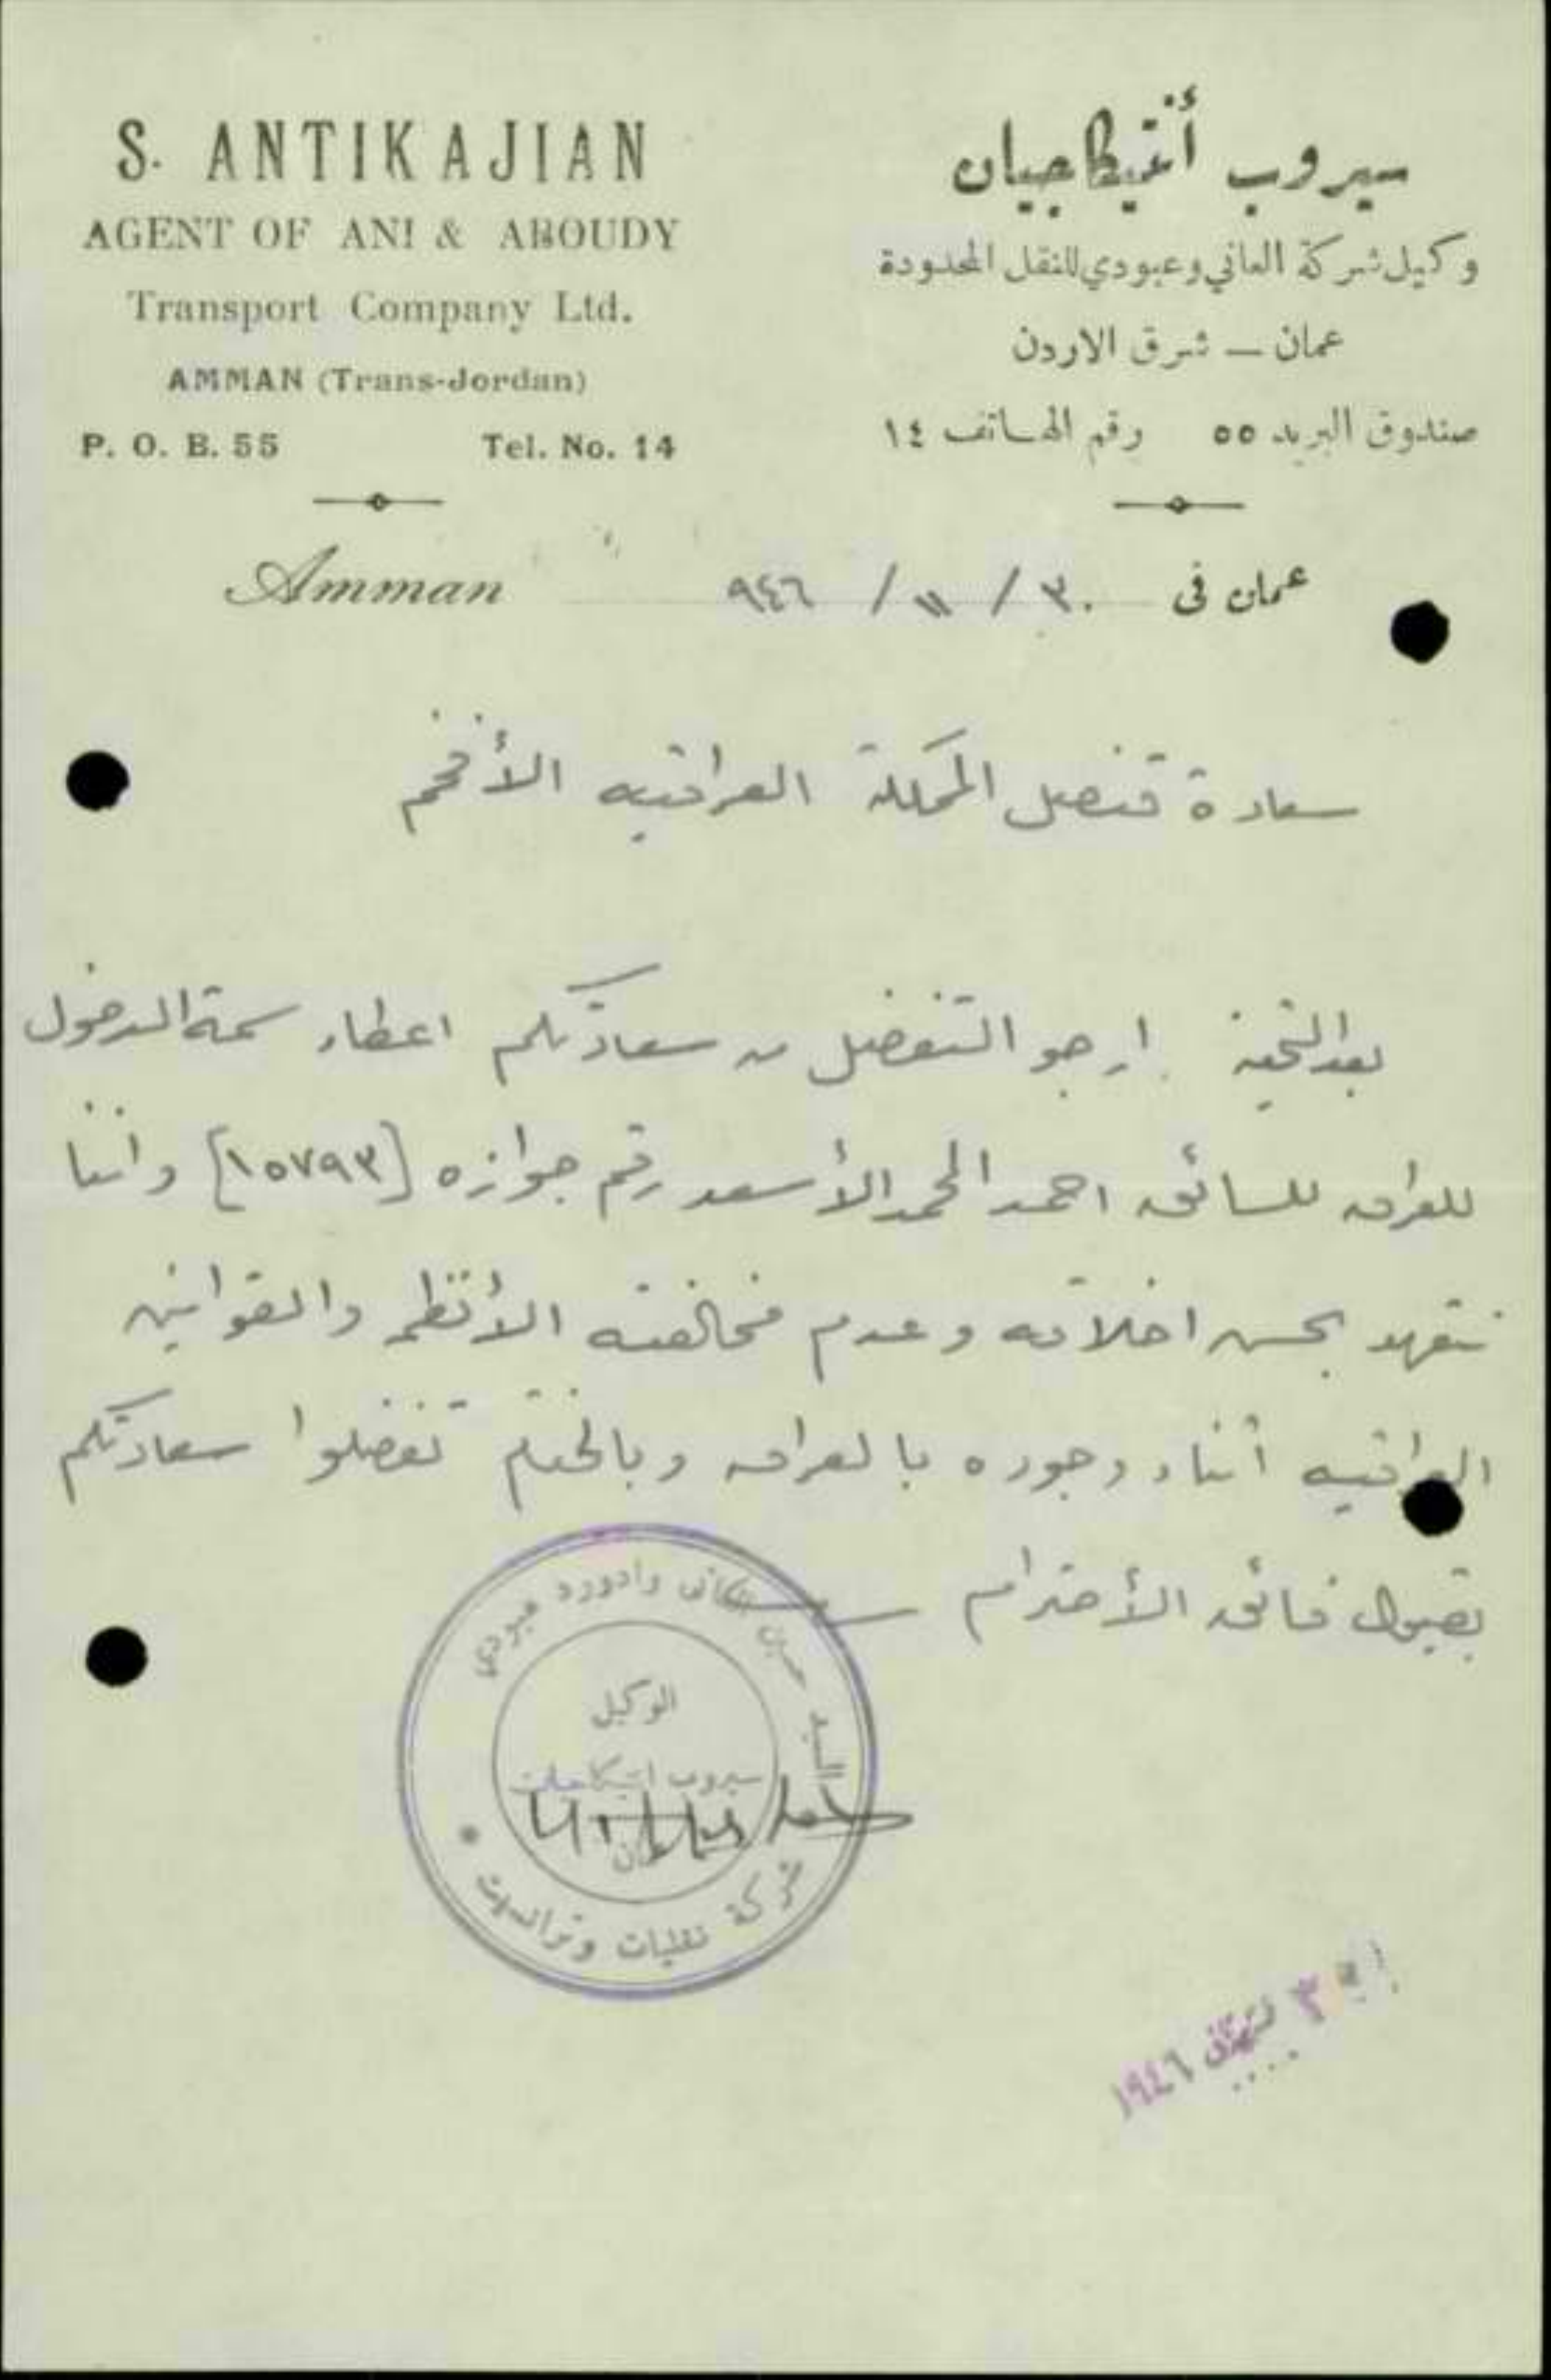 S. ANTIKAJIAN
AGENT OF ANI & ABOUDY
Transport Company Ltd.
AMMAN (Trans-Jordan)
P. O. B. 55 Tel. No. 14
سيروب أنتيكاجيان
وكيل شركة العاني وعبودي للنقل المحدودة
عمان — شرق الاردن
صندوق البريد ٥٥ رقم الهاتف ١٤
Amman
عمان في ٣٠ / ١١ / ٩٤٦
سعادة قنصل المملكة العراقيه الأفخم
بعد التحية ارجو التفضل من سعادتكم اعطاء سمة الدخول
للعراق للسائق احمد المحمد الأسعد رقم جوازه [١٥٧٩٣] واننا
نتعهد بحسن اخلاقه وعدم مخالفته الأنظمه والقوانين
العراقيه أثناء وجوده بالعراق وبالختام تفضلوا سعادتكم
بقبول فائق الأحترام
السيد حسين العاني وادورد عبودي
الوكيل
سيروب انتيكاجيان
عمان
شركة نقليات
١٩٤٦